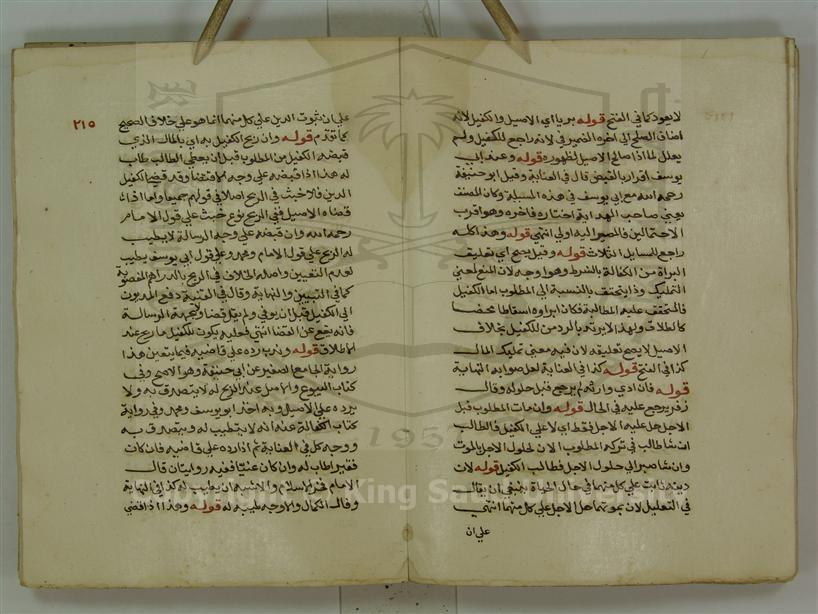 لا يعود كما في الفتح قوله بريا اي الاصيل والكفيل لانه
اضاف الصلح الى اخره الضمير في لانه راجع للكفيل ولم
يعلل لما اذا صالح الاصيل لظهوره قوله وعند ابي
يوسف اقرار بالقبض قال في العناية وقيل ابو حنيفة
رحمه الله مع ابي يوسف في هذه المسئلة وكان المصنف
يعني صاحب الهداية اختاره فاخره وهو اقرب
الاحتمالين فالمصير اليه اولى انتهى قوله وهذا كله
راجع للمسايل الثلاث قوله وقيل يصح اي تعليق
البراة من الكفالة بالشرط وهو اوجه لان المنع لمعنى
التمليك وذا يتحقق بالنسبة الى المطلوب اما الكفيل
فالمتحقق عليه المطالبة فكان ابراوه اسقاطا محضا
كالطلاق ولهذا لا يرتد بالرد من الكفيل بخلاف
الاصيل لا يصح تعليقه لان فيه معنى تمليك المال
كذا في الفتح قوله كذا في العناية لعل صوابه النهاية
قوله فان ادي وارثه لم يرجع قبل حلوله وقال
زفر يرجع عليه في الحال قوله وان مات المطلوب قبل
الاجل حل عليه الاجل فقط اي لا على الكفيل فالطالب
ان شا طالب في تركه المطلوب الان لحلول الاجل بالموت
وان شا صبر الى حلول الاجل فطالب الكفيل قوله لان
دينه ثابت على كل منهما في حال الحياة ينبغي ان يقال
في التعليل لان بموتهما حل الاجل على كل منهما انتهى
على ان
٢١٥
على ان ثبوت الدين على كل منهما انما هو على خلاف الصحيح
كما تقدم قوله وان ربح الكفيل به اي بالمال الذي
قبضه الكفيل من المطلوب قبل ان يعطي الطالب طاب
له هذا اذا قبضه على وجه الاقتضا وقد قضى الكفيل
الدين فلا خبث في الربح اصلا في قولهم جميعا واما اذا
قضاه الاصيل ففي الربح نوع خبث على قول الامام
رحمه الله وان قبضه على وجه الرسالة لا يطيب
له الربح على قول الامام ومحمد وعلى قول ابي يوسف يطيب
لعدم التعيين واصله الخلاف في الربح بالدراهم المغصوبة
كما في التبيين والنهاية وقال في القنية دفع المديون
الى الكفيل قبل ان يوفي ولم يقل قضا ولا بجهة الرسالة
فانه يقع عن القضا انتهى فعليه يكون للكفيل ما ربح عند
الاطلاق قوله وندب رده على قاضيه فيما يتعين هذا
رواية الجامع الصغير عن ابي حنيفة وهو الاصح وفي
كتاب البيوع والاصيل عنه الربح له لا يتصدق به ولا
يرده على الاصيل وبه اخذ ابو يوسف ومحمد وفي رواية
كتاب الكفالة عنه انه لا يطيب له ويتصدق به
ووجه كل في العناية ثم اذا رده على قاضيه فان كان
فقيرا طاب له وان كان غنيا ففيه روايتان قال
الامام فخر الاسلام والاشبه ان يطيب له كذا في النهاية
وقال الكمال والاوجه طيبه له قوله وهذا اذا قضى